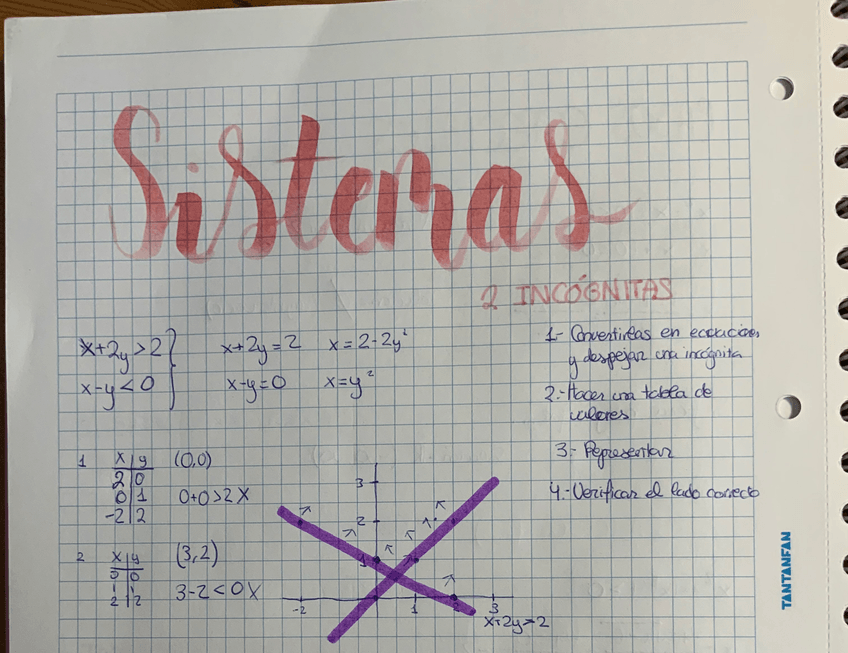 Sistemas
2 INCÓGNITAS
x+2y>2
x-y<0
x+2y=2 x=2-2y²
x-y=0 x=y²
1- Convertirlas en ecuaciones
y despejar una incógnita
2.- Hacer una tabla de
valores
3.- Representar
4.- Verificar el lado correcto
1 x y (0,0)
2 0
0 1 0+0>2 X
-2 2
2 x y (3,2)
0 0
1 1 3-2<0 X
2 2
3
2
1
-2 1 2 3
x+2y=2
TANTANFAN